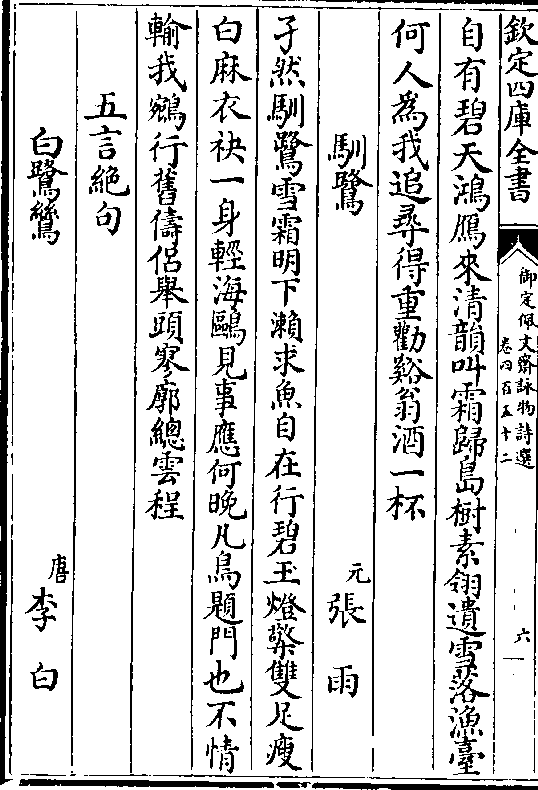 欽定四庫全書
御定佩文齋詠物詩選
卷四百五十二
六
自有碧天鴻鴈來清韻叫霜歸島樹素翎遺雪落漁臺
何人為我追尋得重勸谿翁酒一杯
馴鷺
元
張雨
孑然馴鷺雪霜明下瀨求魚自在行碧玉燈檠雙足瘦
白麻衣袂一身輕海鷗見事應何晚凡鳥題門也不情
輸我鵷行舊儔侶舉頭寥廓總雲程
五言絶句
白鷺鷥
唐
李白